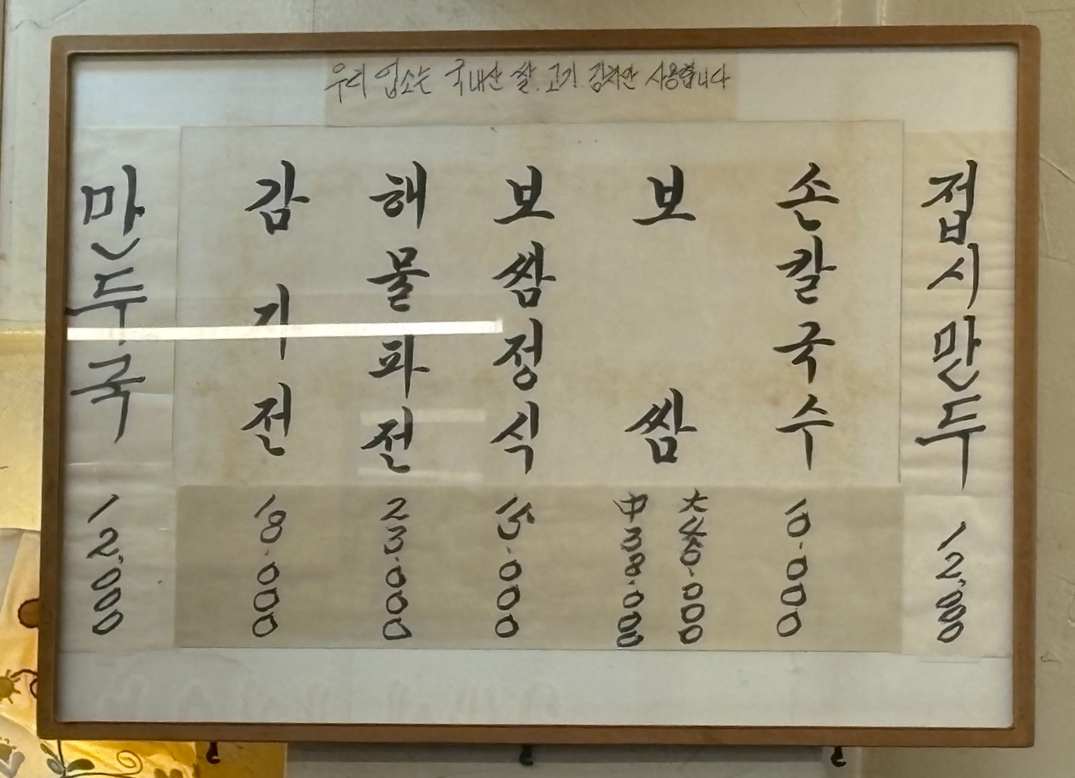 우리 업소는 국내산 쌀. 고기. 김치만 사용합니다
만두국 12,000
감자전 18.000
해물파전 23.000
보쌈정식 15.000
보쌈
中 38.000
大 45.000
손칼국수 10.000
접시만두 12,000